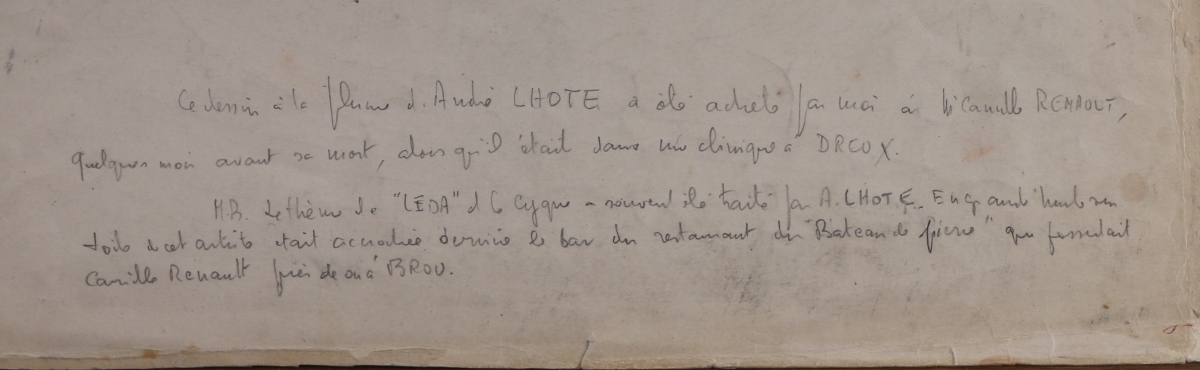 Ce dessin à la plume d'André LHOTE a été acheté par moi à Mr Camille RENAULT,
quelques mois avant sa mort, alors qu'il était dans une clinique à DREUX.
N.B. Le thème de "LÉDA" et le Cygne a souvent été traité par A. LHOTE. Une grande huile sur
toile de cet artiste était accrochée derrière le bar du restaurant du "Bateau de pierre" que possédait
Camille Renault près de ou à BROU.